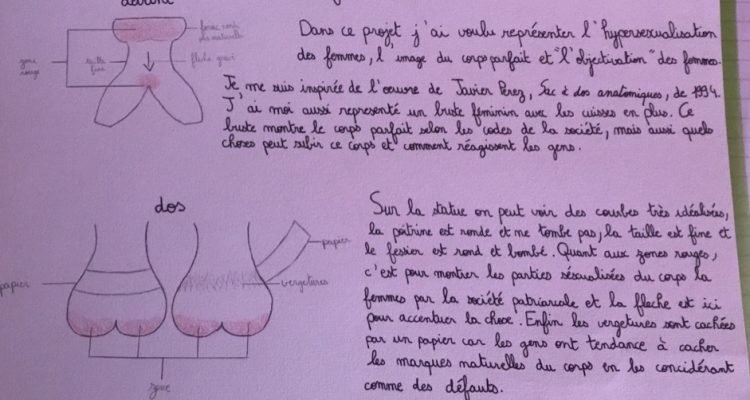 devant
forme ronde
pas naturelle
zone
rouge
taille
fine
flèche
Dans ce projet j'ai voulu représenter l'hypersexualisation
des femmes, l'image du corps parfait et "l'objectivation" des femmes.
Je me suis inspirée de l'œuvre de Javier Perez, Sac à dos anatomiques, de 1994.
J'ai moi aussi représenté un buste féminin avec les cuisses en plus. Ce
buste montre le corps parfait selon les codes de la société, mais aussi quels
choses peut subir ce corps et comment réagissent les gens.
dos
papier
papier
vergetures
zone
Sur la statue on peut voir des courbes très idéalisées,
la poitrine est ronde et ne tombe pas, la taille est fine et
le fessier est rond et bombé. Quant aux zones rouges,
c'est pour montrer les parties séxualisées du corps la
femmes par la société patriarcale et la fleche est ici
pour accentuer la chose. Enfin les vergetures sont cachées
par un papier car les gens ont tendance à cacher
les marques naturelles du corps en les concidérant
comme des défauts.